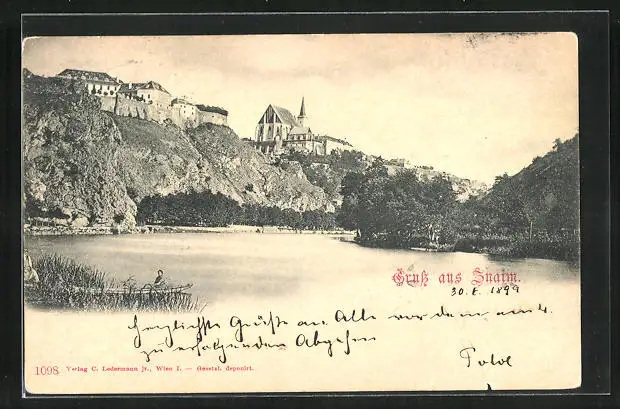 Gruß aus Znaim.
30. 8. 1899
herzlichste Grüße an Alle vor dem
zu erfolgenden Abgehen
1098 Verlag C. Ledermann jr., Wien I. — Gesetzl. deponirt.